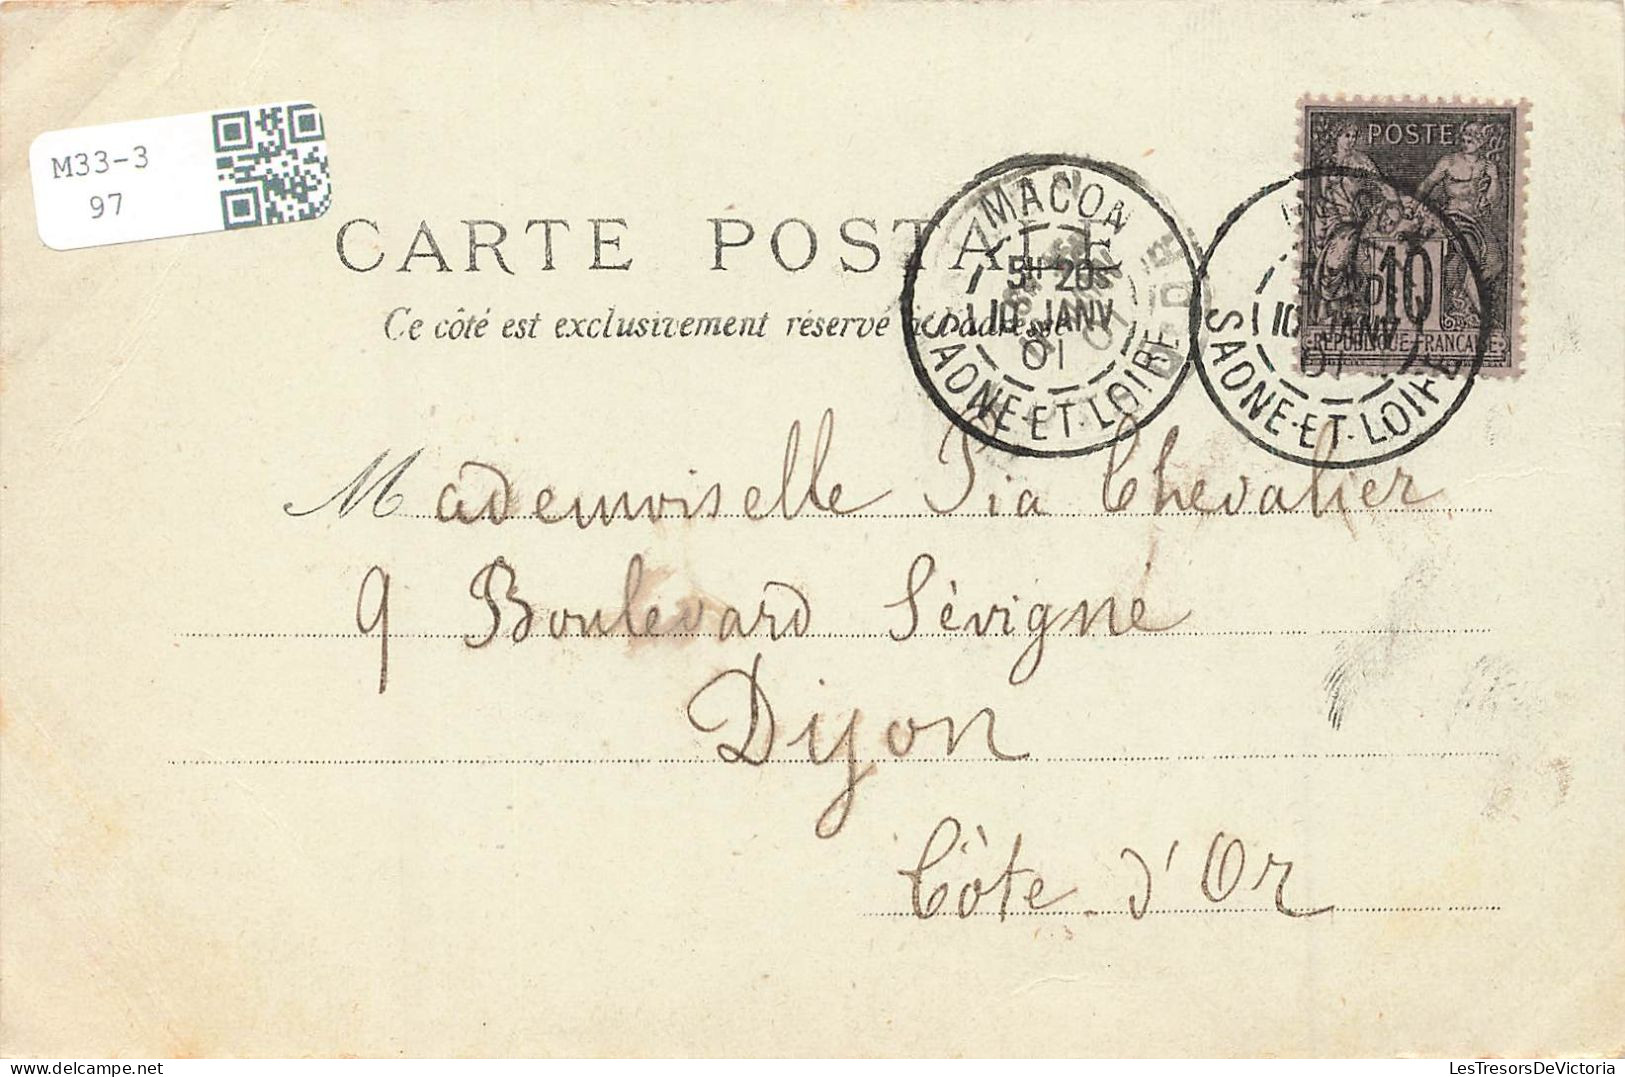 M33-3
97
CARTE POSTALE
Ce côté est exclusivement réservé à l'adresse
MACON
5H 20
10 JANV
01
SAONE-ET-LOIRE
POSTE
10
REPUBLIQUE FRANCAISE
10 JANV
01
SAONE-ET-LOIRE
Mademoiselle Pia Chevalier
9 Boulevard Sévigné
Dijon
Côte-d'Or
LesTresorsDeVictoria